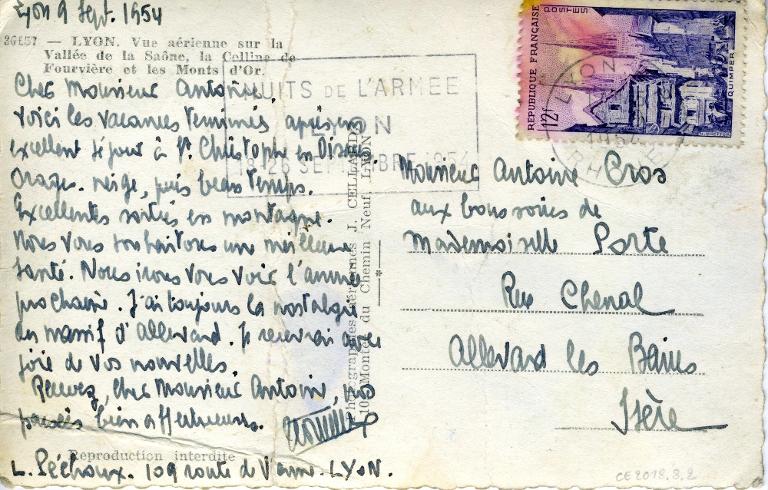 Lyon 9 Sept. 1954
36657 — LYON. Vue aérienne sur la
Vallée de la Saône, la Colline de
Fourvière et les Monts d'Or.
Cher Monsieur Antoine,
Voici les vacances terminées après un
excellent séjour à St. Christophe en Oisans.
Orages. neige, puis beau temps.
Excellentes sorties en montagne.
Nous vous souhaitons une meilleure
santé. Nous irons vous voir l'année
prochaine. J'ai toujours la nostalgie
du massif d'Allevard. Je recevrai avec
joie de vos nouvelles.
Recevez, cher Monsieur Antoine, nos
pensées bien affectueuses.
Reproduction interdite
L. Péchoux. 109 route de Vienne. LYON.
NUITS DE L'ARMEE
LYON
18-26 SEPTEMBRE 1954
Photographies aériennes J. CELLARD
10, Montée du Chemin Neuf, LYON
REPUBLIQUE FRANÇAISE
POSTES
12f
QUIMPER
LYON
RHONE
Monsieur Antoine Cros
aux bons soins de
Mademoiselle Porte
Rue Chenal
Allevard les Bains
Isère
CE2018.3.2